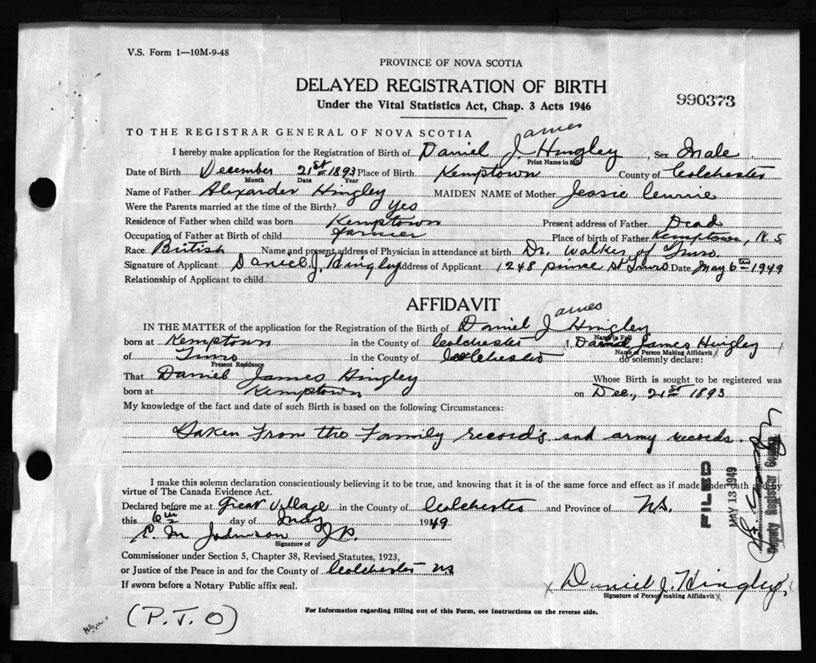 V.S. Form 1—10M-9-48
PROVINCE OF NOVA SCOTIA
DELAYED REGISTRATION OF BIRTH
Under the Vital Statistics Act, Chap. 3 Acts 1946
990373
TO THE REGISTRAR GENERAL OF NOVA SCOTIA
I hereby make application for the Registration of Birth of Daniel J. James Hingley, Sex Male
Print Name in full
Date of Birth December 21st 1893 Place of Birth Kemptown County of Colchester
Month Date Year
Name of Father Alexander Hingley MAIDEN NAME of Mother Jessie
Were the Parents married at the time of the Birth? Yes
Residence of Father when child was born Kemptown Present address of Father Dead
Occupation of Father at Birth of child farmer Place of birth of Father Kemptown, N.S
Race British Name and present address of Physician in attendance at birth Dr. Walker of Truro.
Signature of Applicant Daniel J. Hingley Address of Applicant 1248 prince St Truro Date May 6th 1949
Relationship of Applicant to child
AFFIDAVIT
IN THE MATTER of the application for the Registration of the Birth of Daniel J James Hingley
born at Kemptown in the County of Colchester I, Daniel James Hingley
Name of Person Making Affidavit
of Truro in the County of Colchester do solemnly declare:
Present Residence
That Daniel James Hingley Whose Birth is sought to be registered was
born at Kemptown on Dec, 21st 1893
My knowledge of the fact and date of such Birth is based on the following Circumstances:
Taken From the Family records and army records.
I make this solemn declaration conscientiously believing it to be true, and knowing that it is of the same force and effect as if made under oath and by
virtue of The Canada Evidence Act.
Declared before me at Great Village in the County of Colchester and Province of N.S.
this 6th day of 1949
Johnson J.P.
Signature of
Commissioner under Section 5, Chapter 38, Revised Statutes, 1923,
or Justice of the Peace in and for the County of Colchester N.S
If sworn before a Notary Public affix seal.
x Daniel J. Hingley x
Signature of Person making Affidavit
FILED
MAY 13 1949
Deputy Registrar General
(P.T.O)
For Information regarding filling out of this Form, see Instructions on the reverse side.